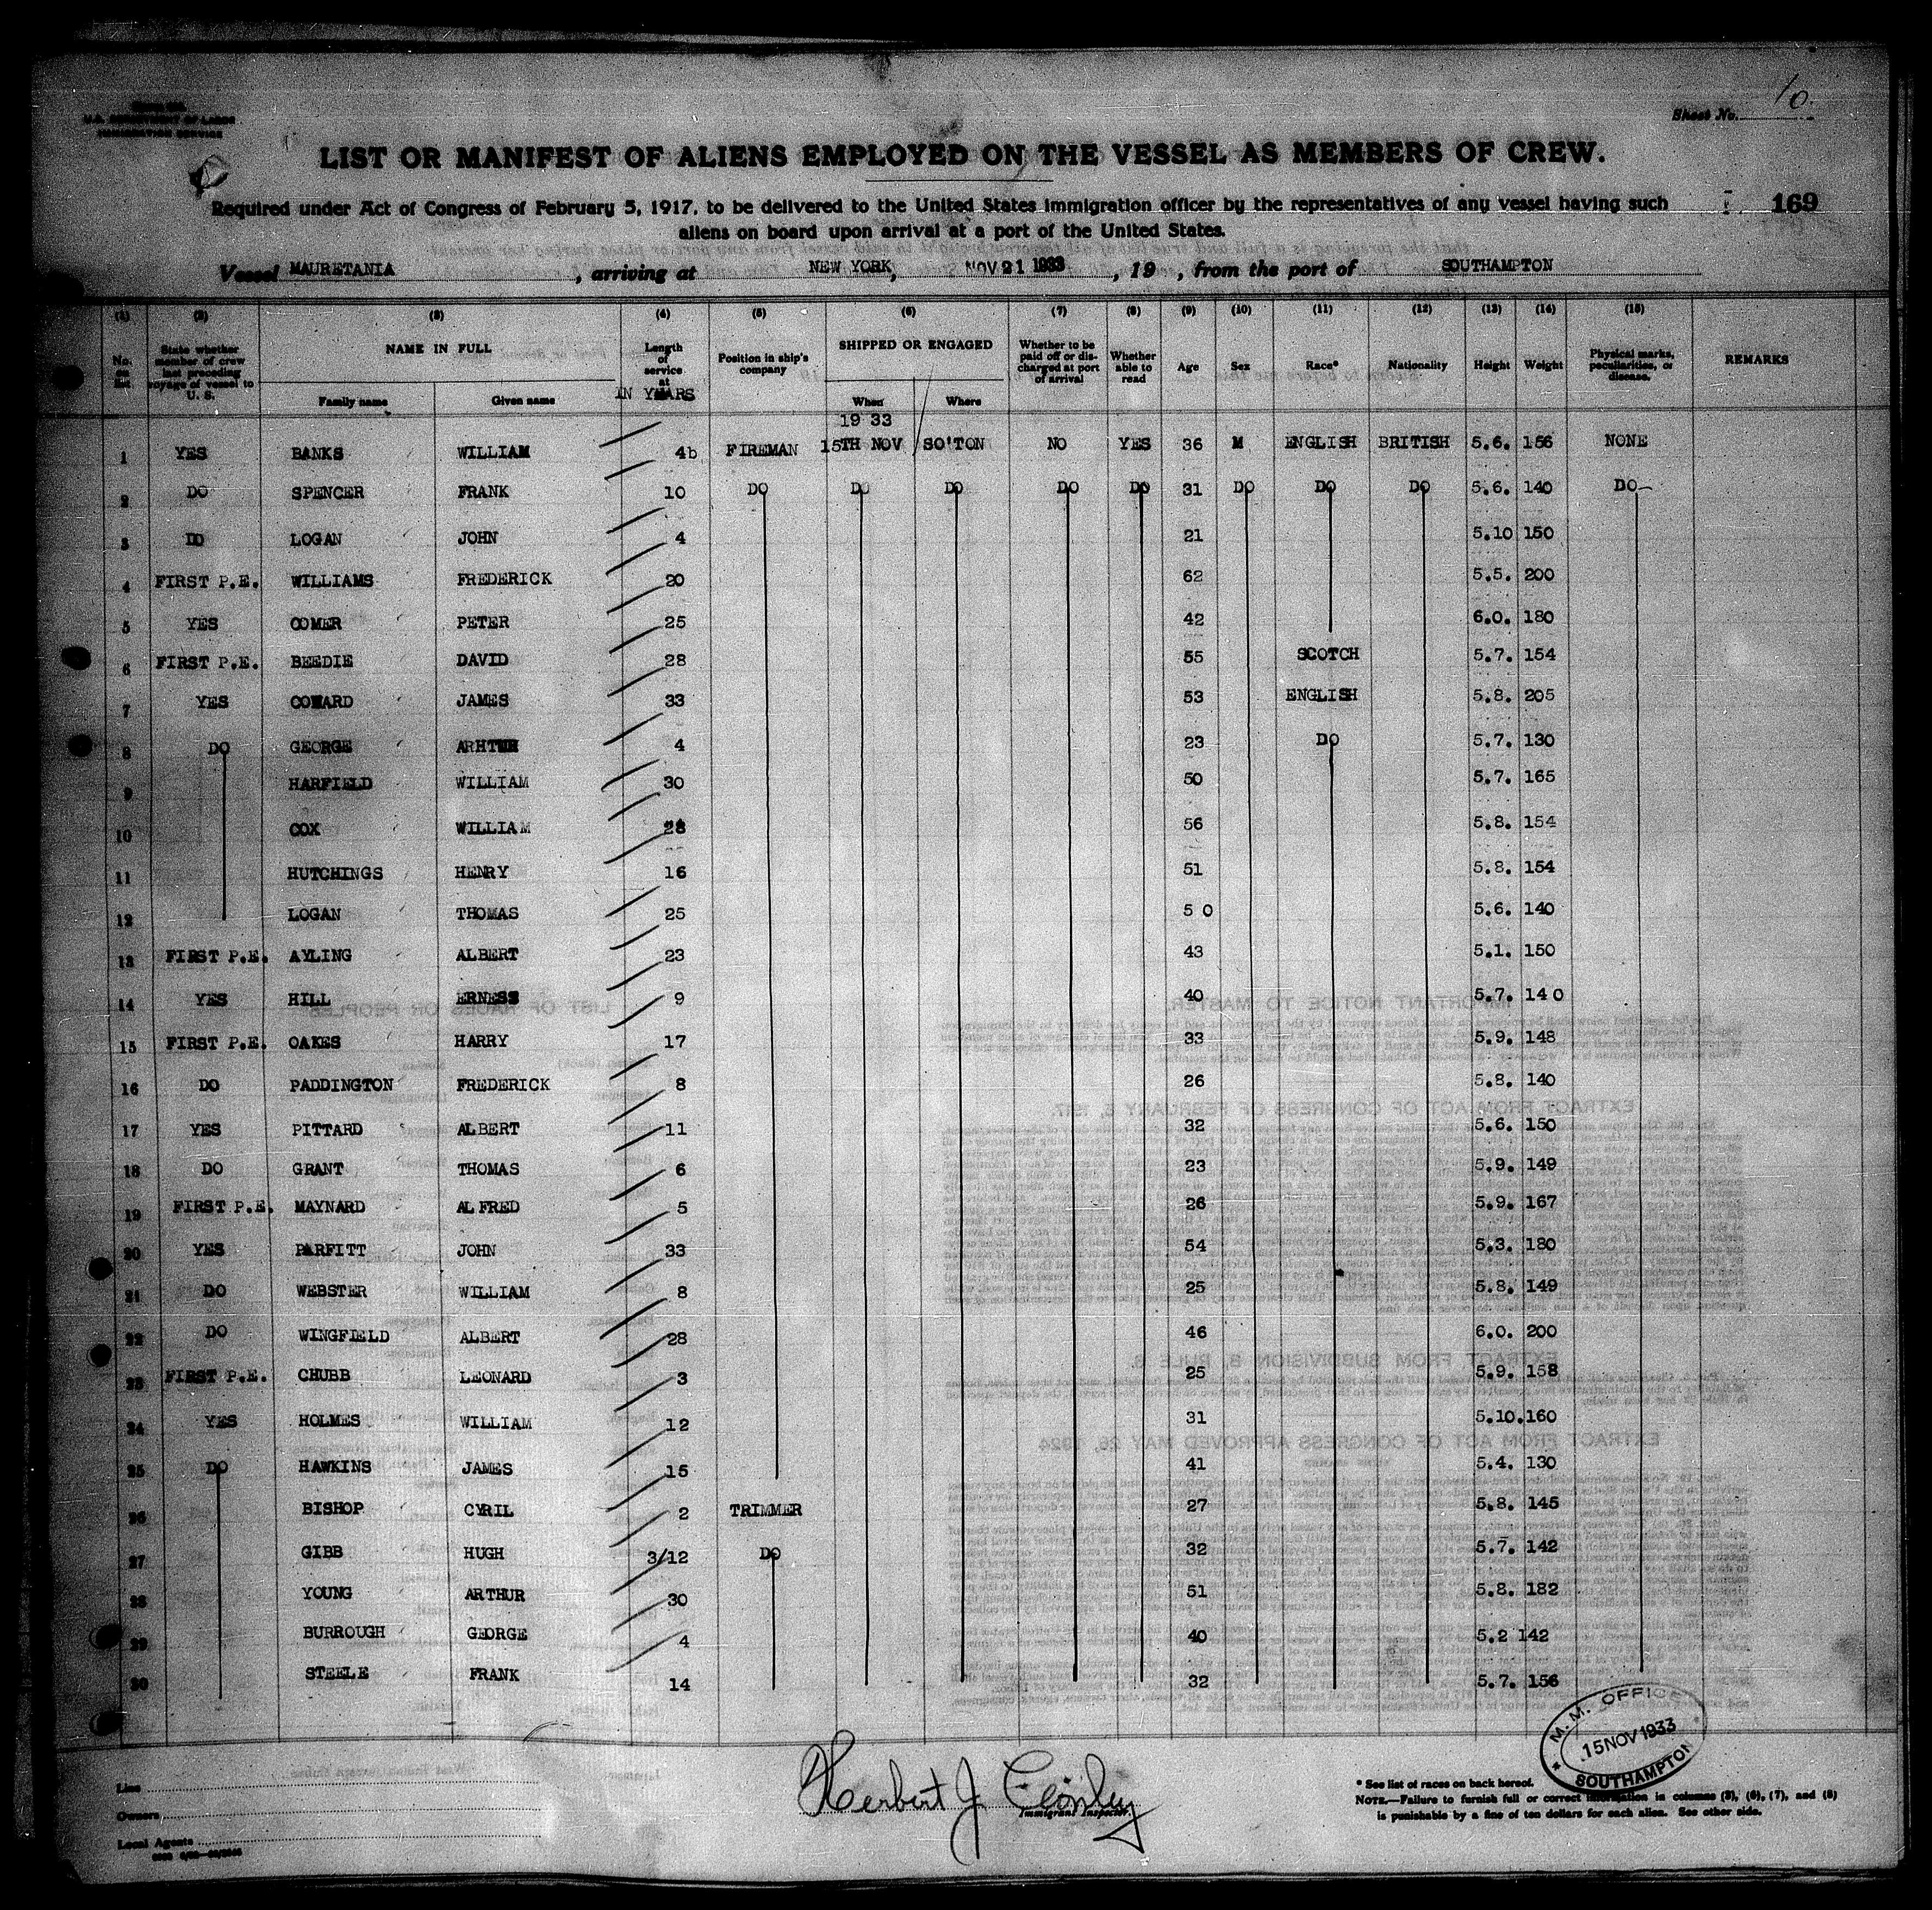 Sheet No. 10.
U.S. DEPARTMENT OF LABOR
IMMIGRATION SERVICE
LIST OR MANIFEST OF ALIENS EMPLOYED ON THE VESSEL AS MEMBERS OF CREW.
Required under Act of Congress of February 5, 1917, to be delivered to the United States immigration officer by the representatives of any vessel having such
169
aliens on board upon arrival at a port of the United States.
Vessel MAURETANIA, arriving at NEW YORK, NOV 21 1933, 19 , from the port of SOUTHAMPTON
(1) (2) (3) (4) (5) (6) (7) (8) (9) (10) (11) (12) (13) (14) (15)
No. on list State whether member of crew last preceding voyage of vessel to U. S. NAME IN FULL Family name Given name Length of service at IN YEARS Position in ship's company SHIPPED OR ENGAGED When Where Whether to be paid off or discharged at port of arrival Whether able to read Age Sex Race* Nationality Height Weight Physical marks, peculiarities, or disease. REMARKS
19 33
1 YES BANKS WILLIAM 4b FIREMAN 15TH NOV SO'TON NO YES 36 M ENGLISH BRITISH 5.6. 156 NONE
2 DO SPENCER FRANK 10 DO DO DO DO DO 31 DO DO DO 5.6. 140 DO
3 DO LOGAN JOHN 4 21 5.10 150
4 FIRST P.E. WILLIAMS FREDERICK 20 62 5.5. 200
5 YES COMER PETER 25 42 6.0. 180
6 FIRST P.E. BEEDIE DAVID 28 55 SCOTCH 5.7. 154
7 YES COWARD JAMES 33 53 ENGLISH 5.8. 205
8 DO GEORGE ARHTUR 4 23 DO 5.7. 130
9 HARFIELD WILLIAM 30 50 5.7. 165
10 COX WILLIAM 28 56 5.8. 154
11 HUTCHINGS HENRY 16 51 5.8. 154
12 LOGAN THOMAS 25 5 0 5.6. 140
13 FIRST P.E. AYLING ALBERT 23 43 5.1. 150
14 YES HILL ERNESS 9 40 5.7. 140
15 FIRST P.E. OAKES HARRY 17 33 5.9. 148
16 DO PADDINGTON FREDERICK 8 26 5.8. 140
17 YES PITTARD ALBERT 11 32 5.6. 150
18 DO GRANT THOMAS 6 23 5.9. 149
19 FIRST P.E. MAYNARD ALFRED 5 26 5.9. 167
20 YES PARFITT JOHN 33 54 5.3. 180
21 DO WEBSTER WILLIAM 8 25 5.8. 149
22 DO WINGFIELD ALBERT 28 46 6.0. 200
23 FIRST P.E. CHUBB LEONARD 3 25 5.9. 158
24 YES HOLMES WILLIAM 12 31 5.10. 160
25 DO HAWKINS JAMES 15 41 5.4. 130
26 BISHOP CYRIL 2 TRIMMER 27 5.8. 145
27 GIBB HUGH 3/12 DO 32 5.7. 142
28 YOUNG ARTHUR 30 51 5.8. 182
29 BURROUGH GEORGE 4 40 5.2 142
30 STEELE FRANK 14 32 5.7. 156
M. M. OFFICE
15 NOV 1933
SOUTHAMPTON
Line
Owners
Local Agents
Herbert J
Immigrant Inspector
* See list of races on back hereof.
NOTE.—Failure to furnish full or correct information in columns (3), (6), (7), and (8)
is punishable by a fine of ten dollars for each alien. See other side.